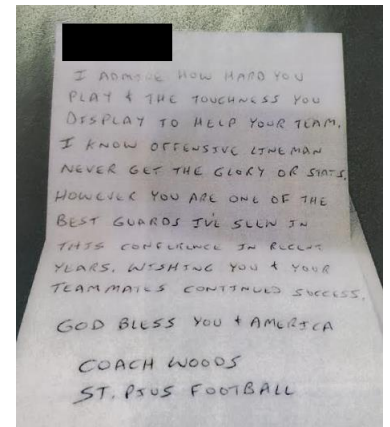 I ADMIRE HOW HARD YOU
PLAY & THE TOUGHNESS YOU
DISPLAY TO HELP YOUR TEAM.
I KNOW OFFENSIVE LINEMAN
NEVER GET THE GLORY OR STATS.
HOWEVER YOU ARE ONE OF THE
BEST GUARDS I'VE SEEN IN
THIS CONFERENCE IN RECENT
YEARS. WISHING YOU & YOUR
TEAMMATES CONTINUED SUCCESS.
GOD BLESS YOU & AMERICA
COACH WOODS
ST. PIUS FOOTBALL